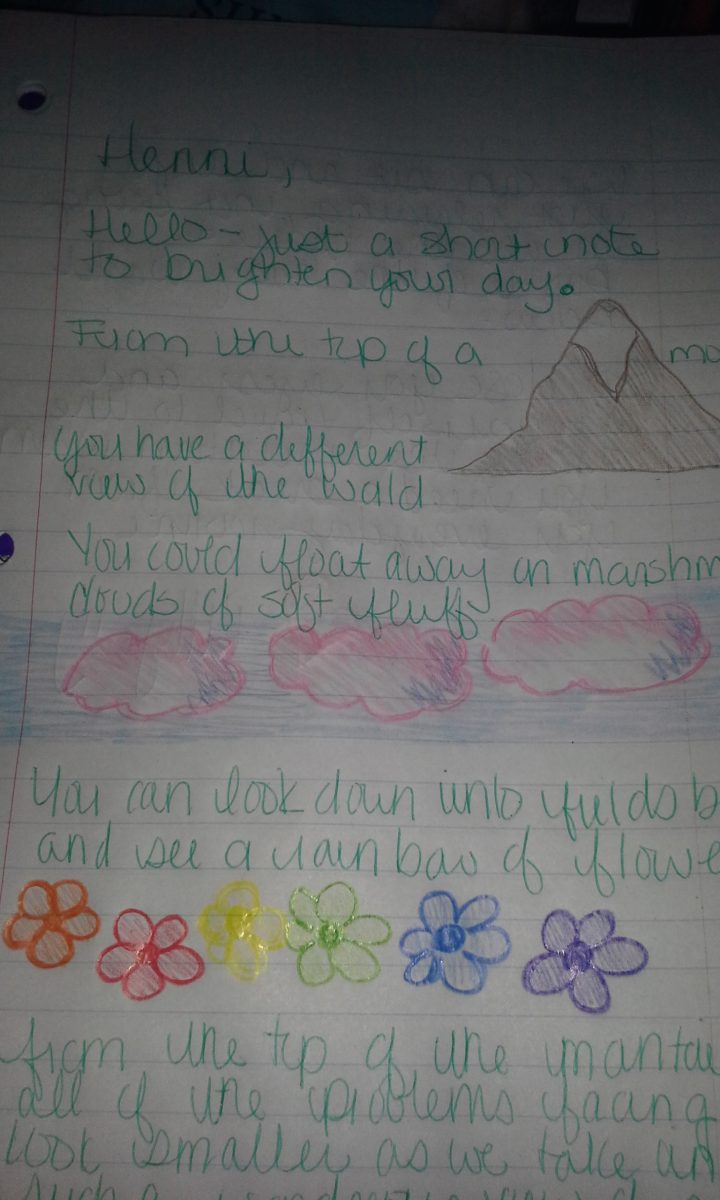 Henni,
Hello - just a short note
to brighten your day.
From the top of a mo
you have a different
view of the world
You could float away on marshm
clouds of soft fluff
You can look down unto fields b
and see a rainbow of flowe
from the top of the mountai
all of the problems facing
look smaller as we take an
such a